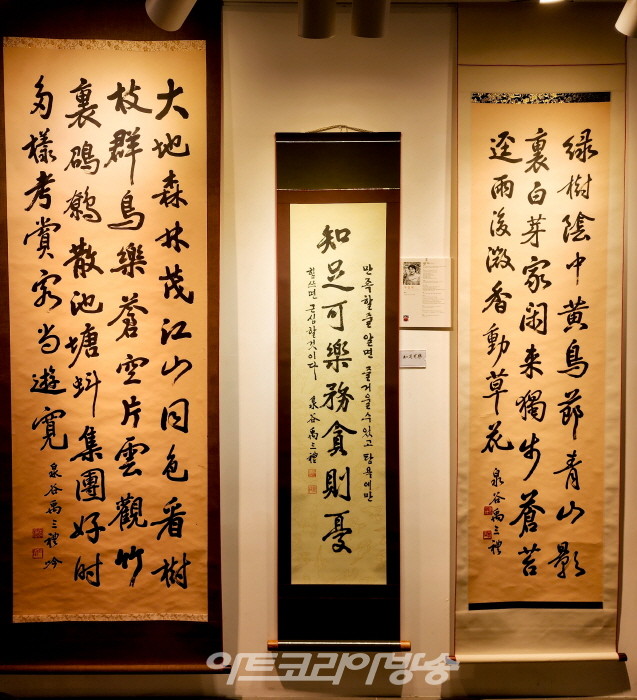 大地森林茂江山同色看樹
枝群鳥樂蒼空片雲觀竹
裏鷯散池塘蚪集團好時
多樣考賞客尚遊寬
泉谷禹三禮吟
만족할줄 알면 즐거울수있고 탐욕에만
知足可樂務貪則憂
힘쓰면 근심할것이다 泉谷禹三禮
綠樹陰中黃鳥節青山影
裏白芽家閑來獨步蒼苔
逕雨後微香動草花
泉谷禹三禮
아트코리아방송